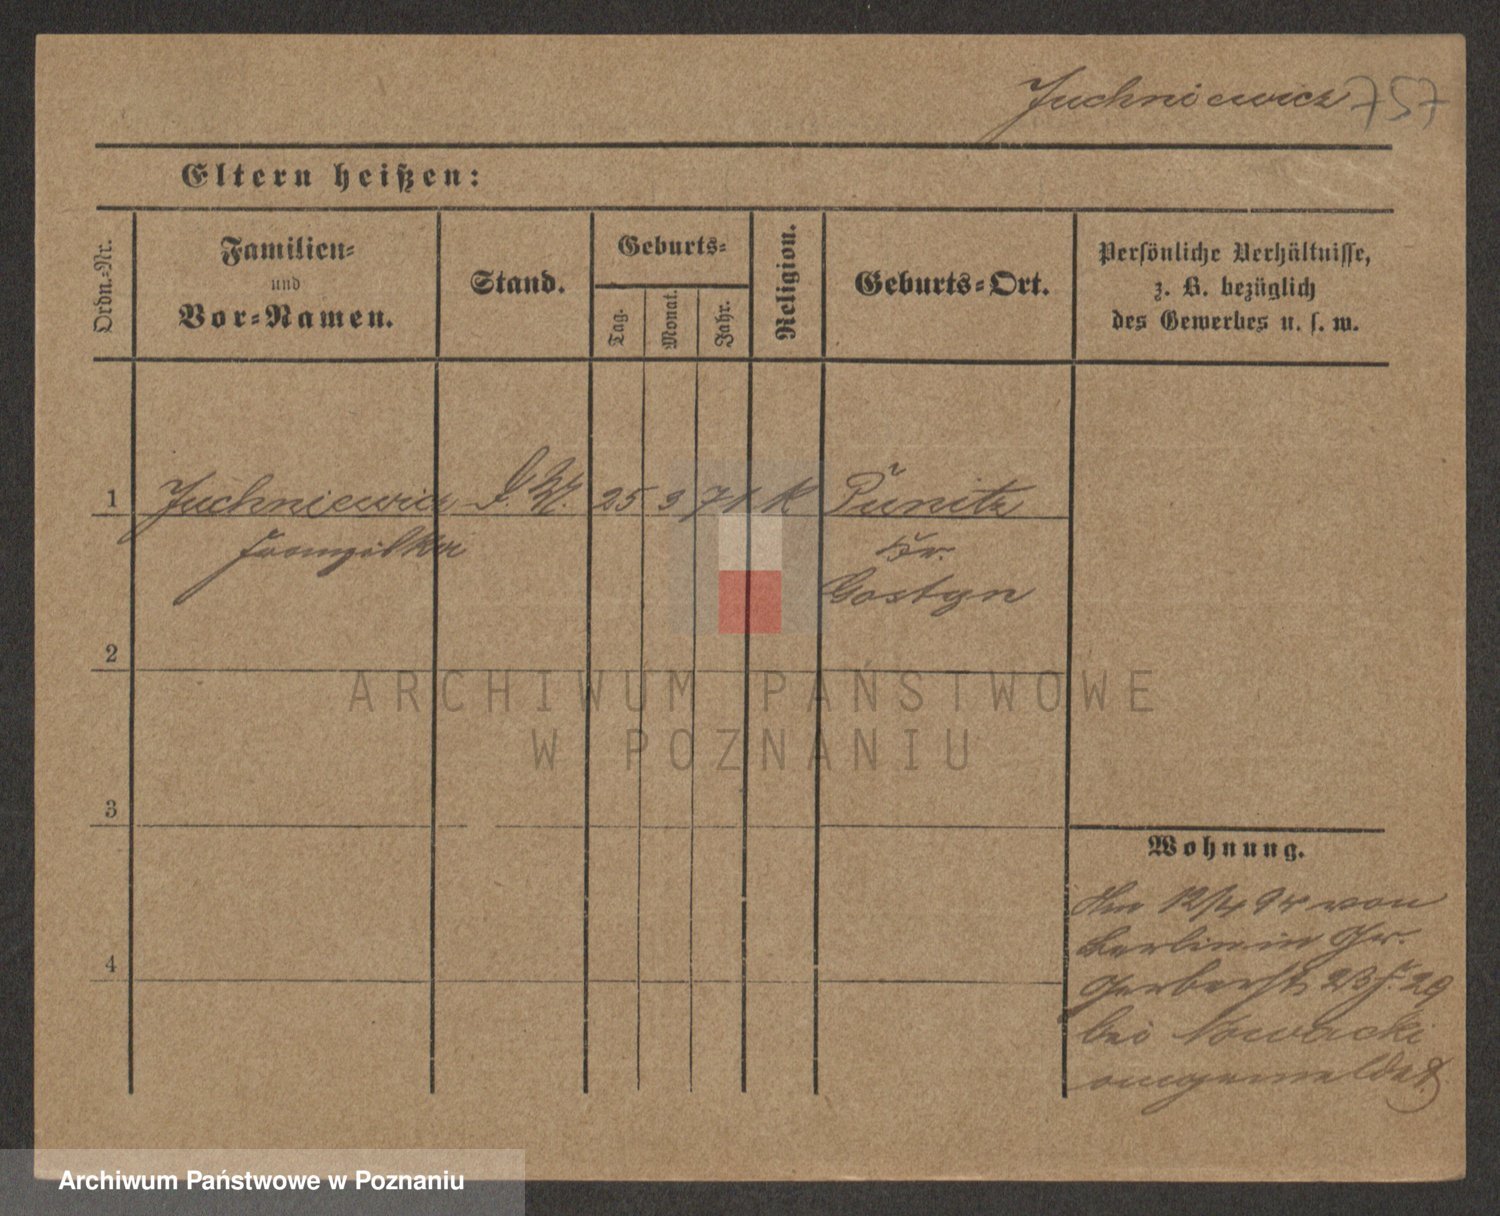 Juchniewicz 757
Eltern heißen:
Ordn.-Nr.
Familien-
und
Vor-Namen.
Stand.
Geburts-
Tag.
Monat.
Jahr.
Religion.
Geburts-Ort.
Persönliche Verhältnisse,
z. B. bezüglich
des Gewerbes u. s. w.
1 Juchniewicz 25 9 71 K Punitz
Kr.
Gostyn
2
3
4
Wohnung.
12/4 94 von
Berlin in Gr.
Gerberstr. 29
bei Nowacki
angemeldet
ARCHIWUM PAŃSTWOWE
W POZNANIU
Archiwum Państwowe w Poznaniu